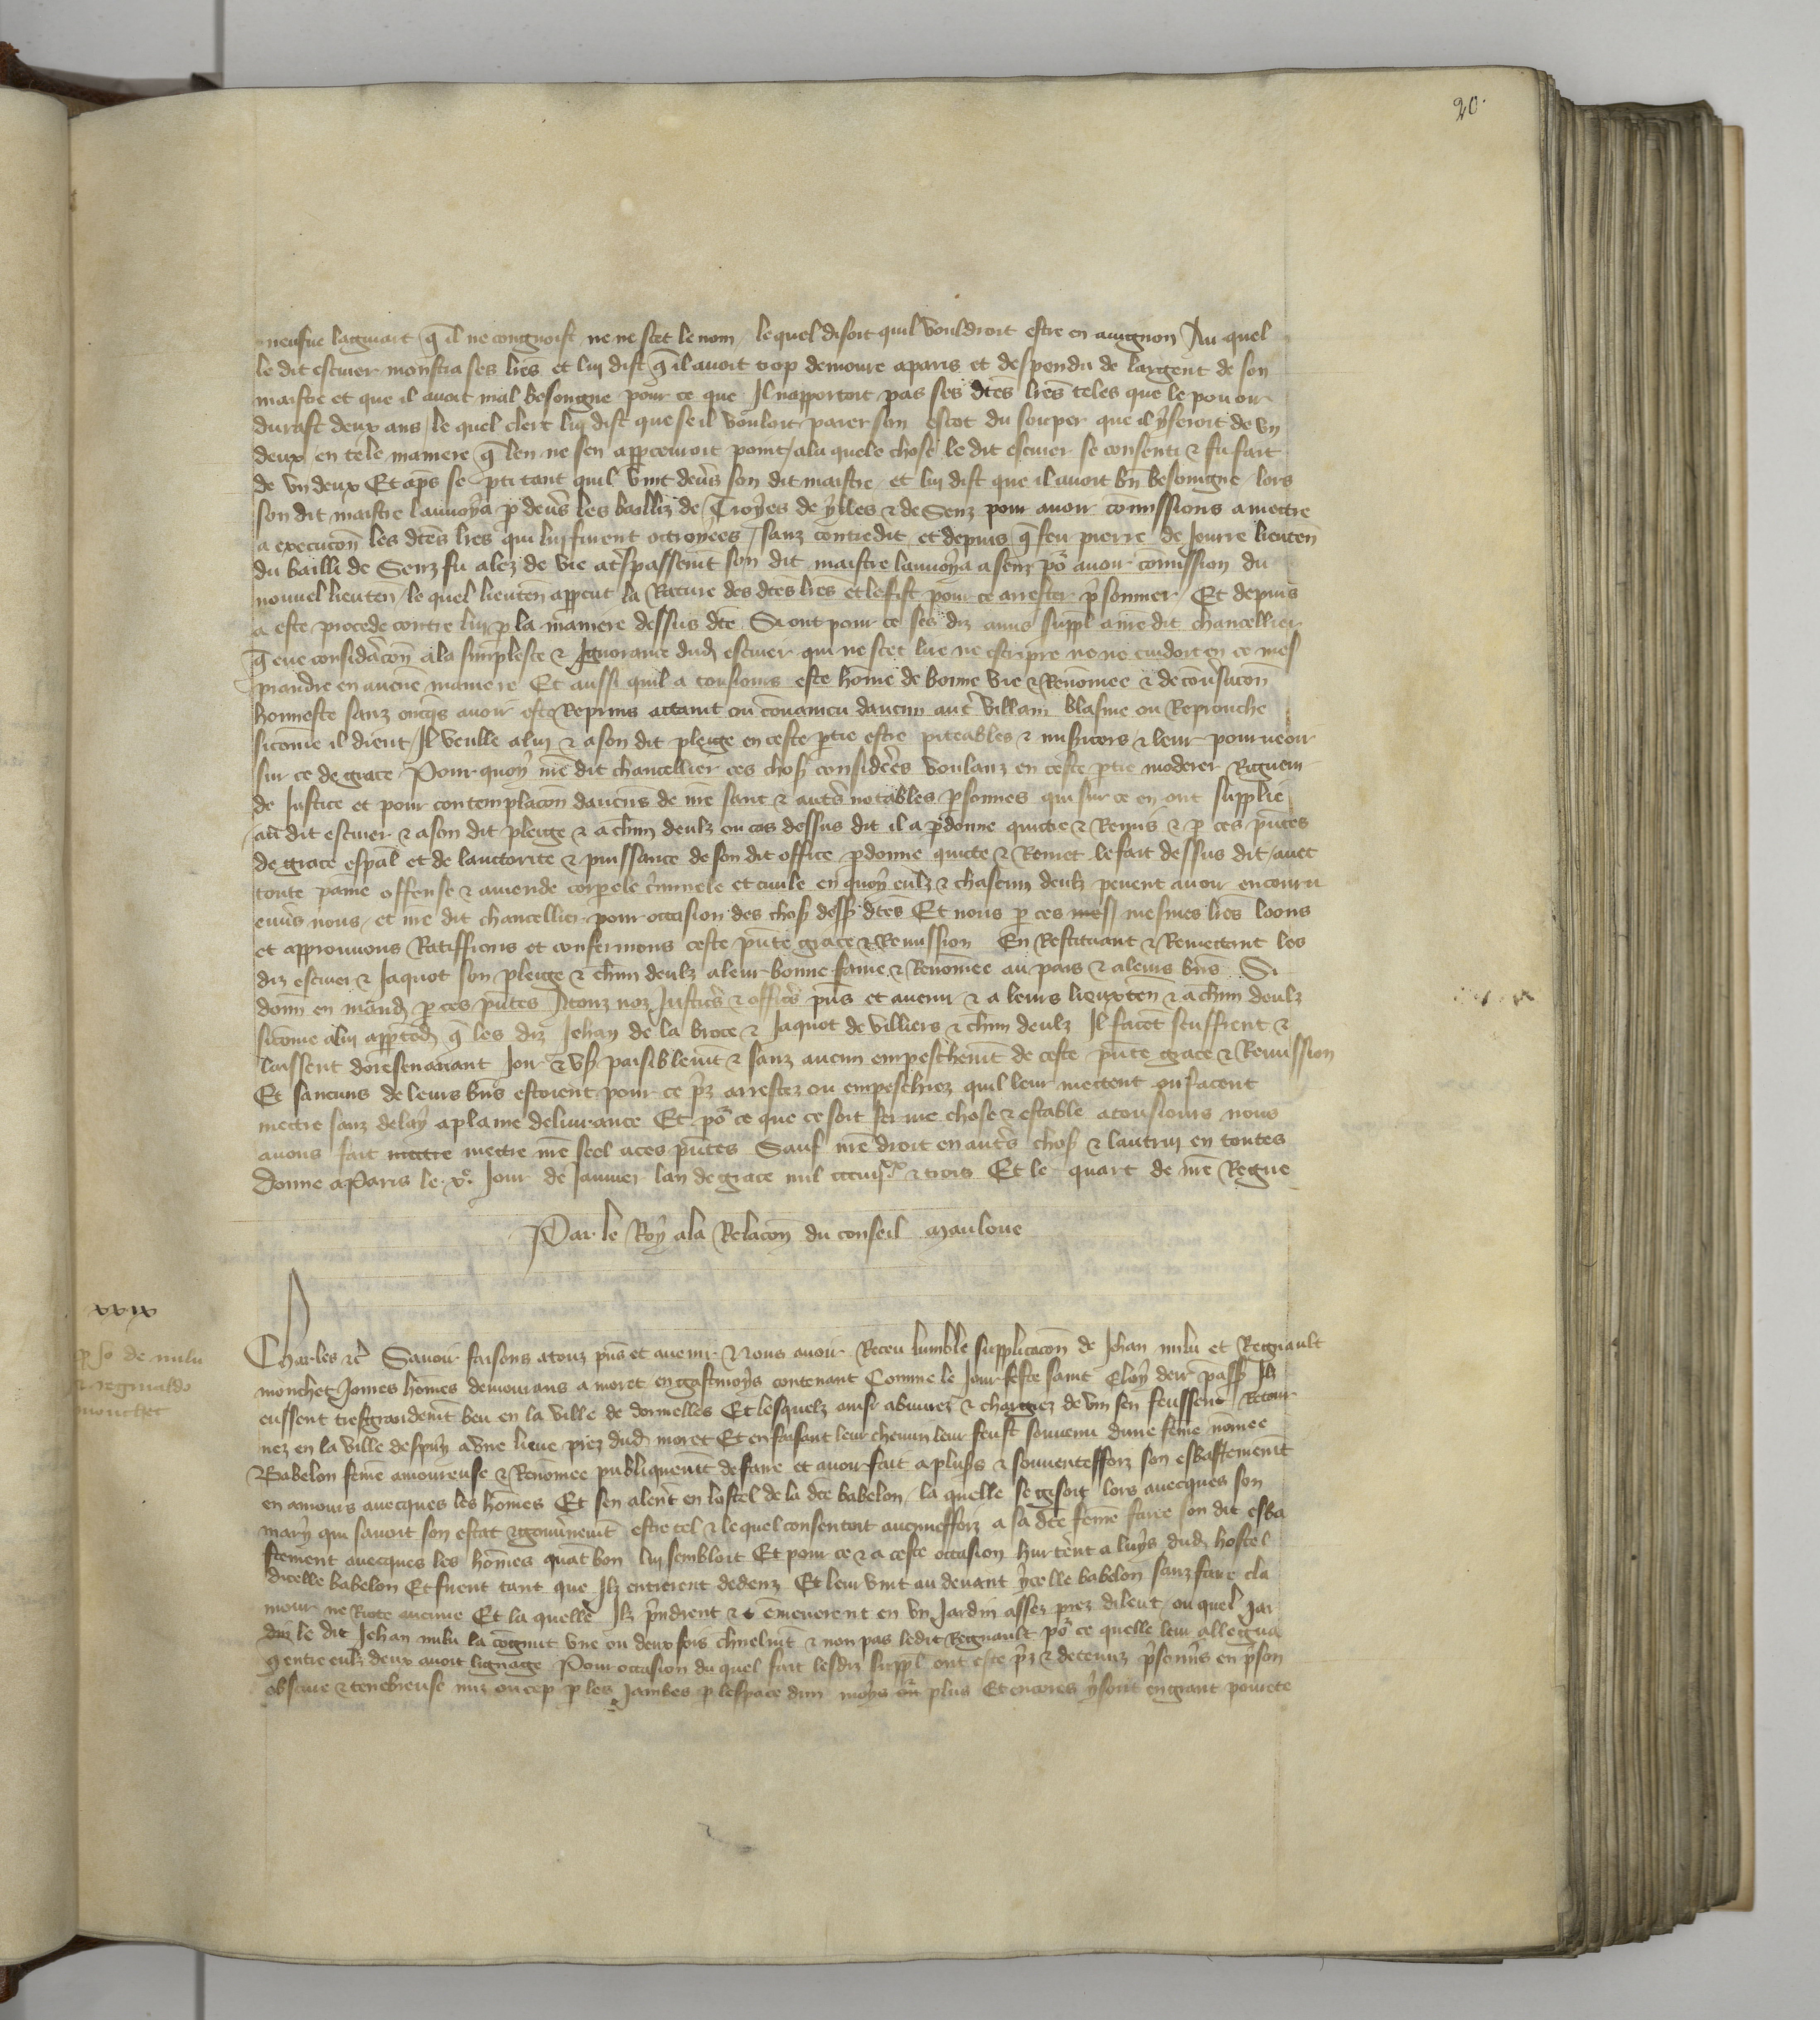 20
neufue laguiart q̄ il ne congnoist ne ne scet le nom / lequel disoit quil vouldroit estre en auignon Au quel
le dit escuier monstra ses lr̄es et luy dist q̄ il auoit trop demoure a paris et despendu de largent de son
maistre et que il auoit mal besoingne pour ce que Il napportoit pas ses dc̄es lr̄es teles que le pouoir
durast deux ans / le quel clerc luy dist que se il vouloit paier son escot du soupper que il y feroit de vn
deux en tele maniere q̄ len ne sen apperceuroit point / ala quele chose le dit escuier se consenti ⁊ fu fait
de vn deux Et ap̄s se p̄ti tant quil vint deūs son dit maistre et luy dist que il auoit bn̄ besoingne / lors
son dit maistre lanuoya p deūs les bailliz de Troyes de ylles ⁊ de Senz pour auoir cōmissions a mettre
a execucōn les dc̄es lr̄es qui luy furent octroyees / sanz contredit et depuis q̄ feu pierre de Jourre lieuten̄
du bailli de Senz fu alez de vie at̄spassem̄t son dit maistre lanuoya a senz po᷑ auoir cōmission du
nouuel lieuten / le quel lieuten̄ appceut la Rature des dc̄es lr̄es et le fist pour ce arrester p̄sonnier / Et depuis
a este procede contre luy p la maniere dessus dc̄e Si ont pour ce ses diz amis suppl̄ a nr̄e dit chancellier
q̄ eue considācōn a la simplesce ⁊ Ignorance dud escuier qui ne scet lire ne escripre ne ne cuidoit en ce mes
prandre en aucune maniere Et aussi quil a tousiours este hōme de bonne vie ⁊ Renōmee ⁊ de conūsacōn
honneste sanz onq̄s auoir este Reprins attaint ou conuaincu daucun aut̄ villain blasme ou Reprouche
sicōme il dient / Il veulle a luy ⁊ a son dit pleige en ceste p̄tie estre piteables ⁊ mis̄icors ⁊ leur pourueoir
sur ce de grace Pour quoy nr̄e dit chancellier ces choses considerees voulanz en ceste p̄tie moderer Rigueur
de Justice et pour contemplacōn daucuns de nr̄e sanc ⁊ aut̄s notables p̄sonnes qui sur ce en ont supplie
au dit escuier ⁊ a son dit pleige ⁊ a chūn deulz ou cas dessus dit il a pdonne quicte ⁊ Remis ⁊ p ces p̄ntes
de grace esp̄al et de lauctorite ⁊ puissance de son dit office pdonne quicte ⁊ Remet le fait dessus dit / auec
toute paine offense ⁊ amende corporele c̄minele et ciuile en quoy eulz ⁊ chascun deulz peuent auoir encouru
enūs nous / et nr̄e dit chancellier pour occasion des choses dess̄ dc̄es Et nous p ces mes mesmes lr̄es loons
et approuuons Ratiffions et confermons ceste p̄nte grace ⁊ Remission En Restituant ⁊ Remettant les
diz escuier ⁊ Jaquot son pleige ⁊ chūn deulz a leur bonne fame ⁊ Renōmee au pais ⁊ a leurs bn̄s Si
donn̄ en mand p ces p̄ntes Atouz noz Justic̄s ⁊ offic̄s p̄ns et auenir ⁊ a leurs lieuxten̄ ⁊ a chūn deulz
sicōme a luy appt̄ed q̄ les diz Jehan de la broce ⁊ Jaquot de villiers ⁊ chūn deulz Il facent seuffrent ⁊
laissent doresenauant Joir ⁊ vs̄ paisiblem̄t ⁊ sanz aucun empeschem̄t de ceste p̄nte grace ⁊ Remission
Et sancuns de leurs bn̄s estoient pour ce p̄z arrestez ou empeschiez quil leur mettent ou facent
mettre sanz delay a plaine deliurance Et po᷑ ce que ce soit ferme chose ⁊ estable a tousiours nous
auons fait mettre mettre nr̄e seel a ces p̄ntes Sauf nr̄e droit en aut̄s choses ⁊ lautruy en toutes
Donne a Paris le .xe. Jour de Januier lan de grace mil ccciiijxx ⁊ trois Et le quart de nr̄e Regne
Par le Roy ala Relacōn du conseil Mauloue
xxix
p Jo de nulu
⁊ reginaldo
mouchet
Charles ⁊c̄ Sauoir faisons atouz p̄ns et auenir ⁊ Nous auoir Receu lumble supplicacōn de Jehan nulu et Regnault
mouchet Jones hōmes demourans a moret en gastinoys contenant Comme le Jour feste saint Eloy derr̄ pass̄ Ilz
eussent tresgrandem̄t beu en la ville de dormelles Et lesquelz ainsi abuurez ⁊ chargiez de vin sen feussent Retour
nez en la ville despiny a vne lieue prez dud moret Et en faisant leur chemin leur feust souuenu dune feme nōmee
Babelon feme amoureuse ⁊ Renōmee publiquem̄t de faire et auoir fait a plus̄s ⁊ souuenteffoiz son esbattem̄t
en amours auecques les hōmes Et sen alerēt en lostel de la dc̄e babelon / la quelle se gisoit lors auecques son
mary qui sauoit son estat ⁊ gouūnem̄t estre tel ⁊ lequel consentoit aucuneffoiz a sa dc̄e feme faire son dit esba
ttement auecques les hōmes quāt bon luy sembloit Et pour ce ⁊ a ceste occasion hurterēt a luys dud hostel
dicelle babelon Et firent tant que Ilz entrerent dedenz Et leur vint au deuant ycelle babelon sanz faire cla
mour ne Riote aucune Et la quelle Ilz p̄ndrent ⁊ ēmenerent en vn Jardin assez prez dileuc / ou quel Jar
din le dit Jehan nulu la cōgnut vne ou deux fois chn̄elm̄t ⁊ non pas ledit Regnault po᷑ ce quelle leur allegua
q̄ entre eulz deux auoit lignage Pour occasion du quel fait lesdiz suppl̄ ont este p̄z ⁊ detenuz p̄sonn̄s en p̄son
obscure ⁊ tenebreuse mis ou cep p les Jambes p lespace dun moys ou plus Et encores y sont en grant pourete